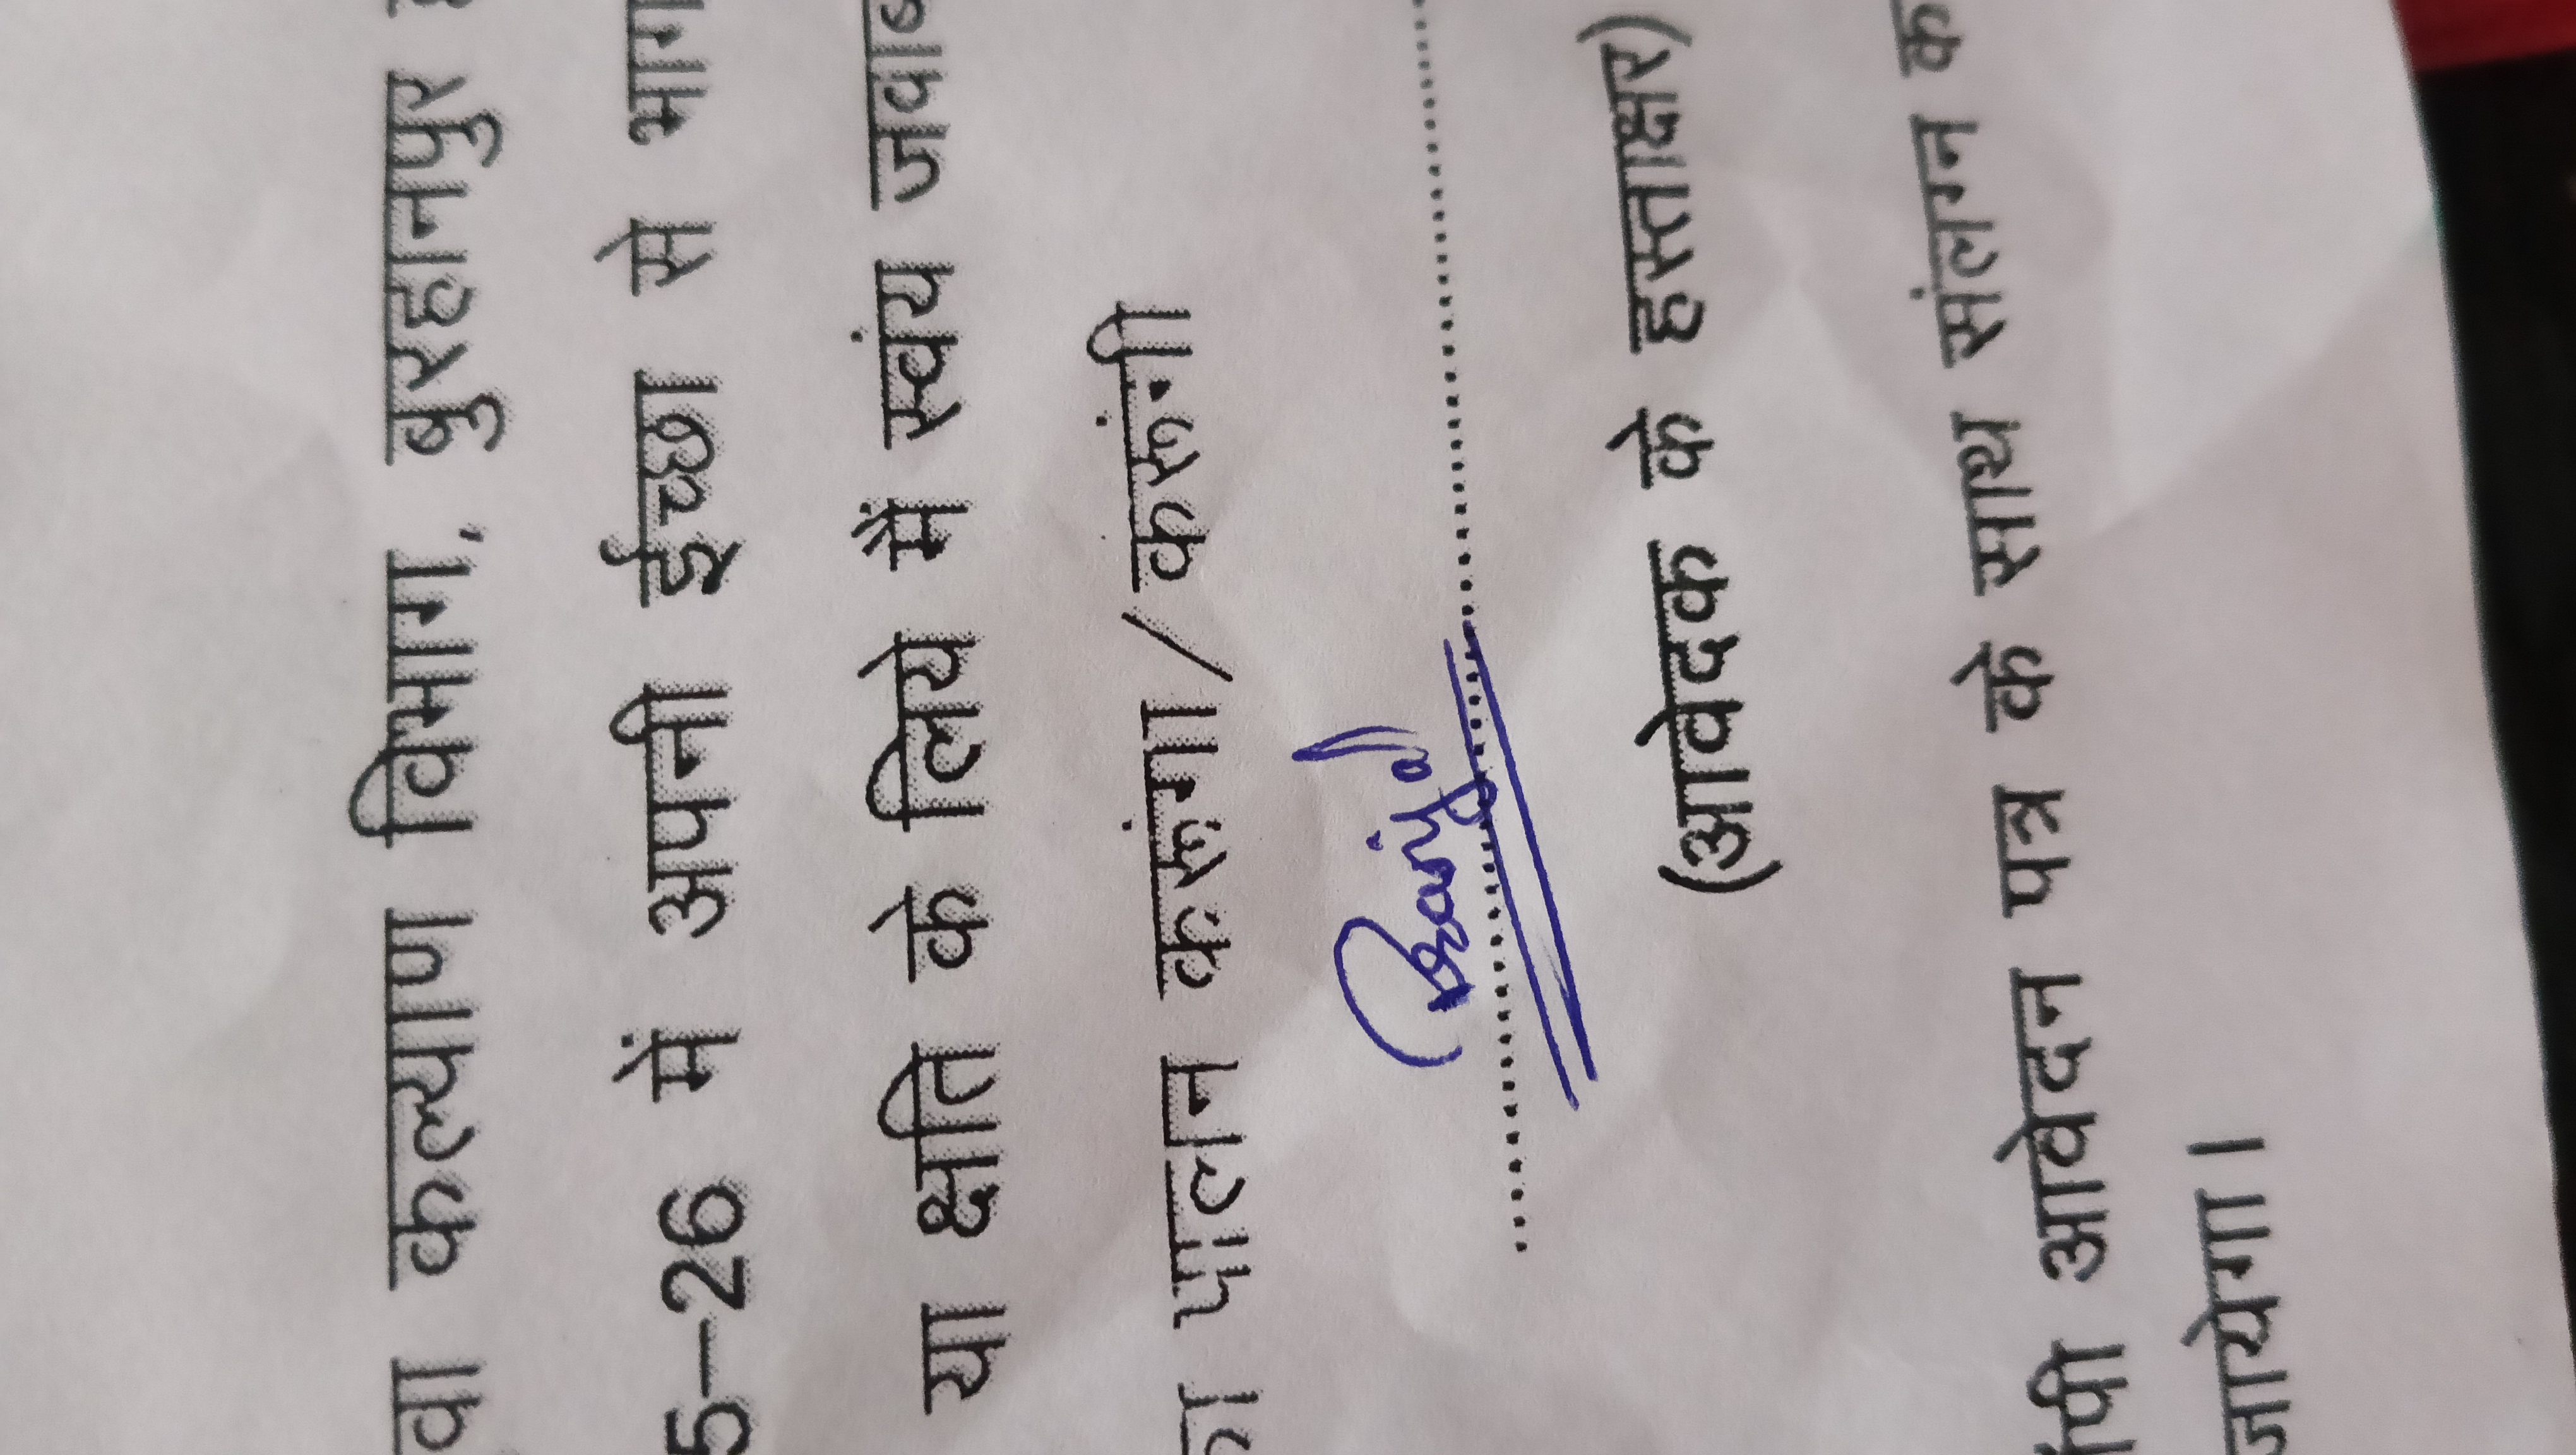 वा कल्याण विभाग, बुरहानपुर
5–26 में अपनी ईच्छा से भाग
या क्षति के लिये मैं स्वंय जवाब
पालन करूंगा/करूंनी
(आवेदक के हस्ताक्षर)
आवेदन पत्र के साथ संलग्न क
जायेगा।